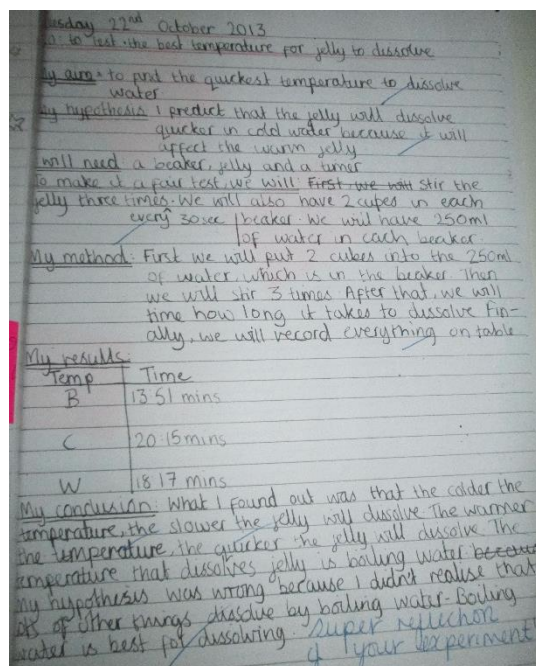 uesday 22nd October 2013
to test the best temperature for jelly to dissolve
My aim: to find the quickest temperature to dissolve
water
My hypothesis I predict that the jelly will dissolve
quicker in cold water because it will
affect the warm jelly
I will need a beaker, jelly and a timer
To make it a fair test, we will: First we will stir the
jelly three times. We will also have 2 cubes in each
every 30 sec beaker. We will have 250ml
of water in each beaker.
My method: First we will put 2 cubes into the 250ml
of water, which is in the beaker. Then
we will stir 3 times. After that, we will
time how long it takes to dissolve Fin-
ally, we will record everything on table
My results:
Temp Time
B 13:51 mins
C 20:15 mins
W 18:17 mins
My conclusion: What I found out was that the colder the
temperature, the slower the jelly will dissolve. The warmer
the temperature, the quicker the jelly will dissolve. The
temperature that dissolves jelly is boiling water becaus
My hypothesis was wrong because I didn't realise that
lots of other things dissolve by boiling water. Boiling
water is best for dissolving. Super reflection
of your experiment